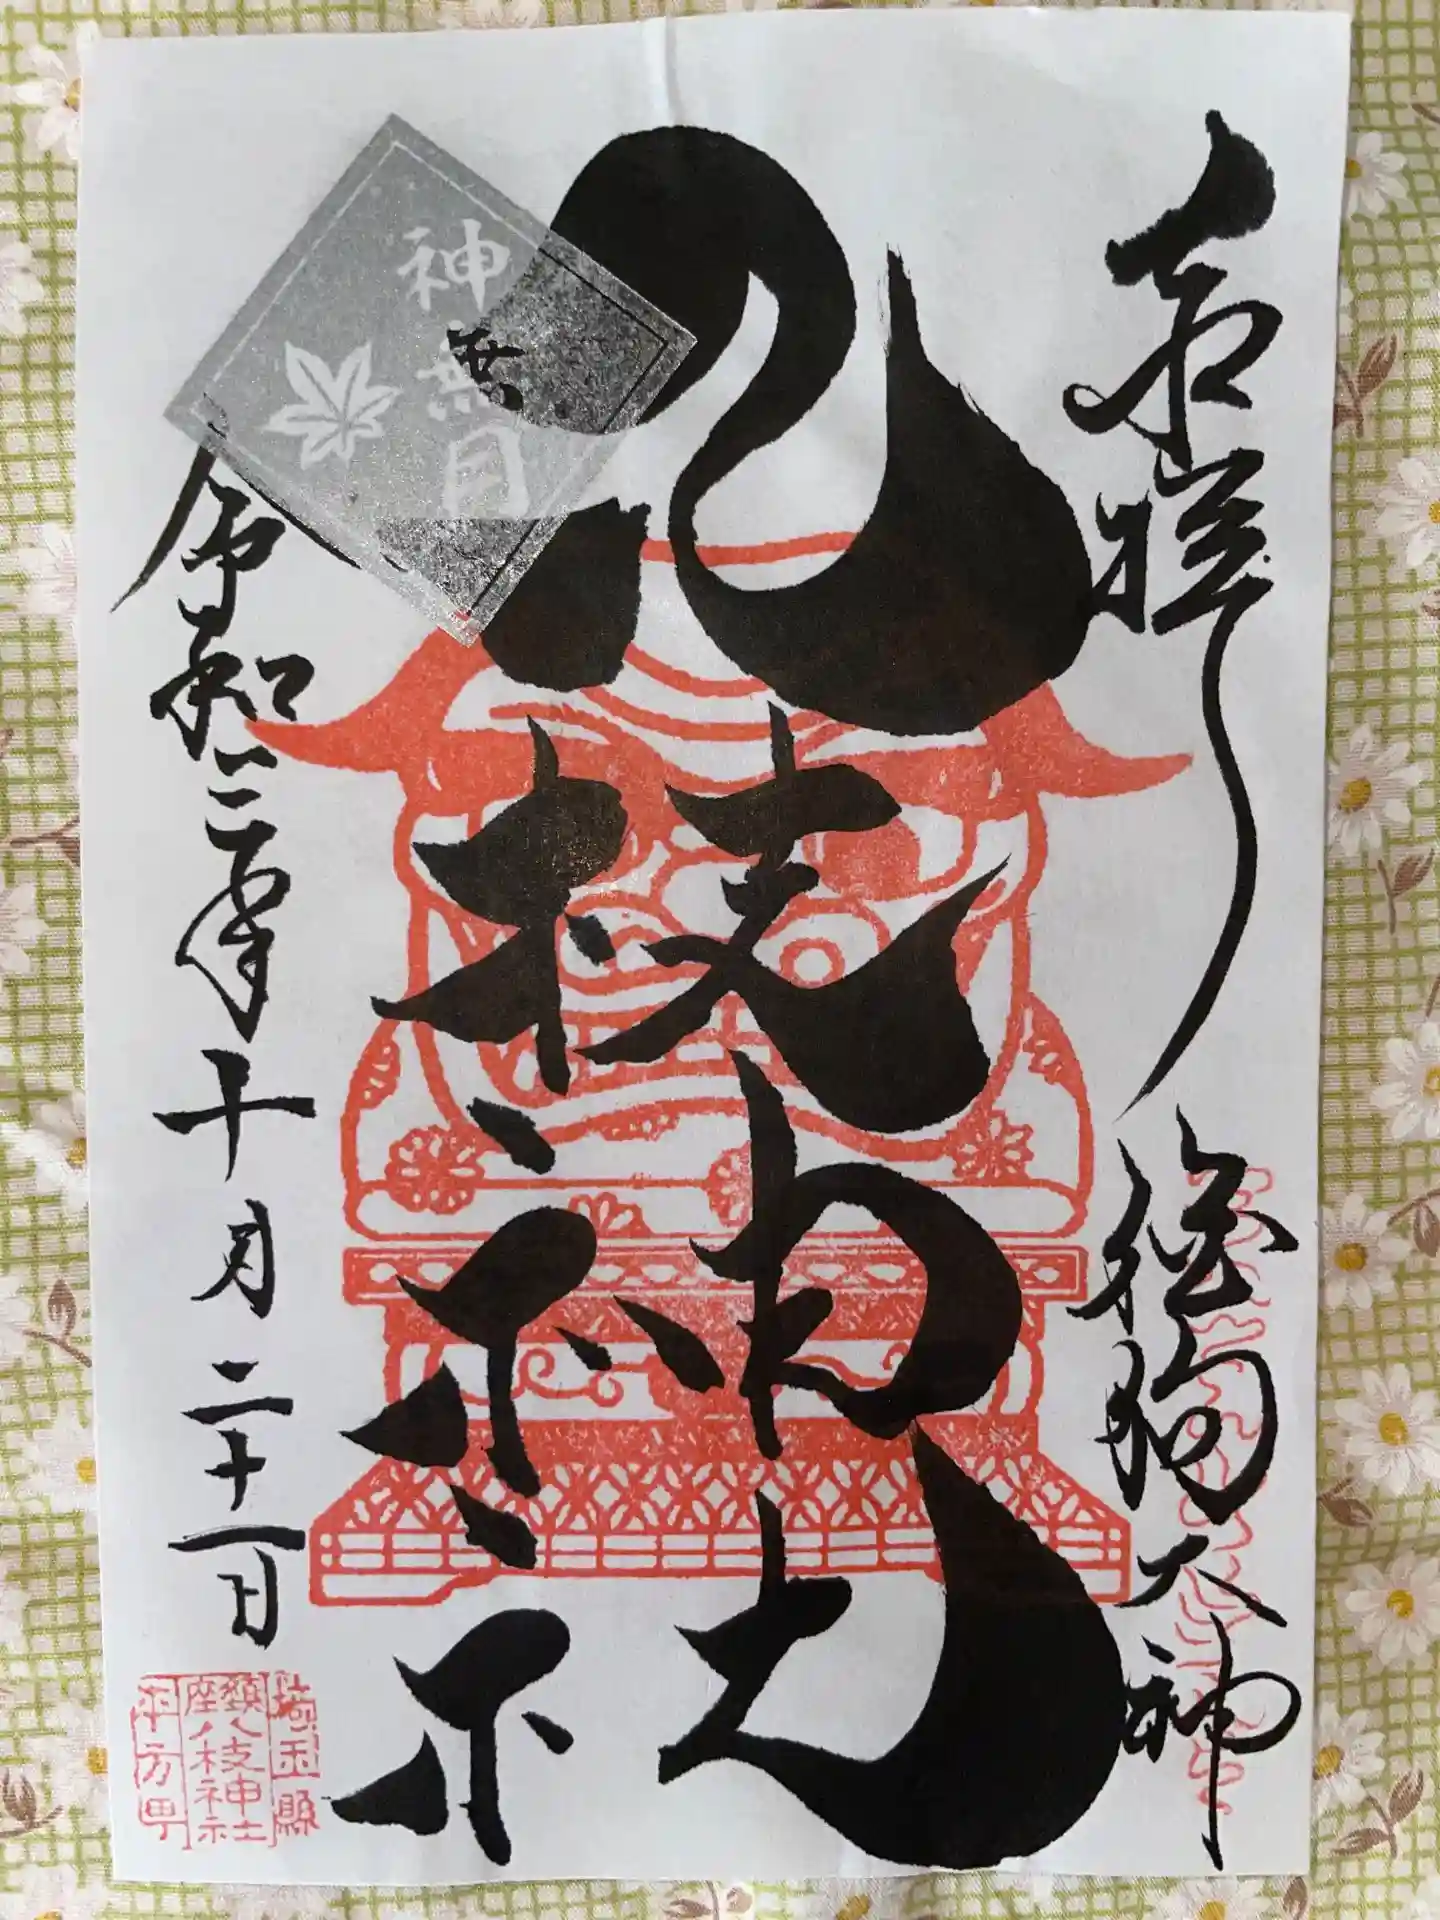 奉拝
狗大神
八枝神社
神無月
令和三年十月二十一日
埼玉縣
鎮座八枝神社
平方町